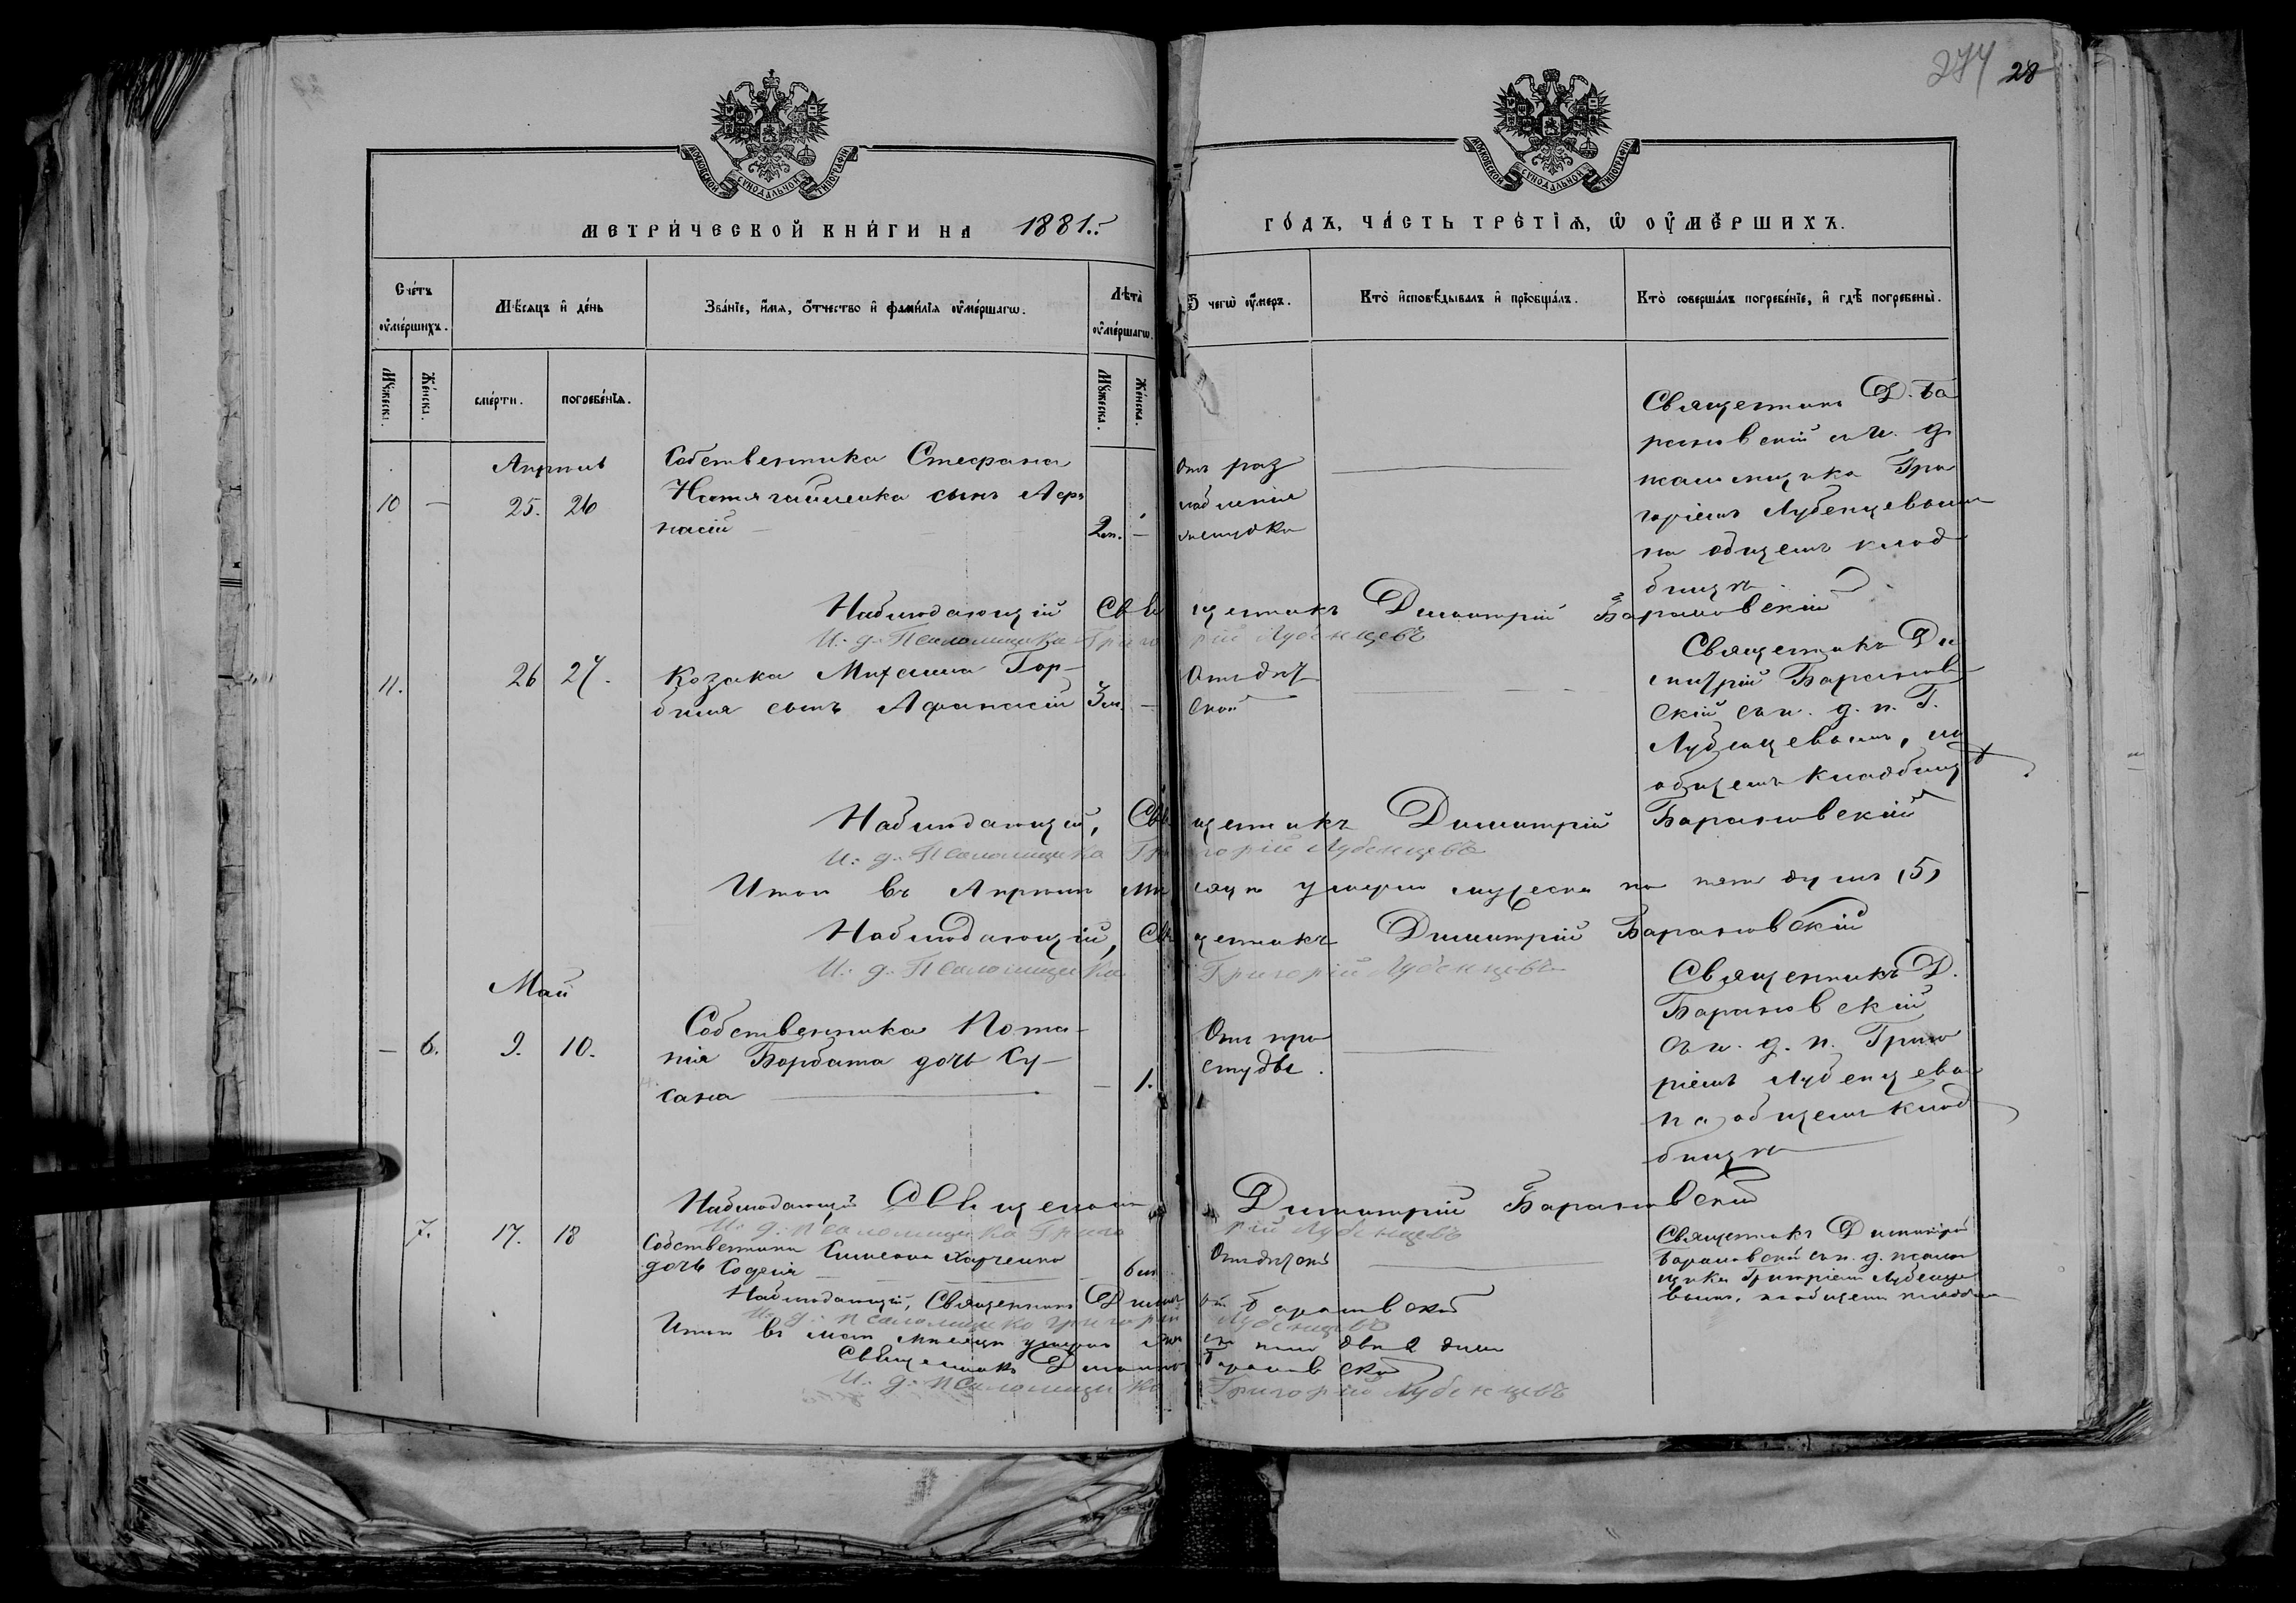 274 28
МОСКОВСКОЙ СѴНОДАЛЬНОЙ ТИПОГРАФІИ
МОСКОВСКОЙ СѴНОДАЛЬНОЙ ТИПОГРАФІИ
МЕТРИ́ЧЕСКОЙ КНИ́ГИ НА 1881.
ГО́ДЪ, ЧА́СТЬ ТРЕ́ТІѦ, Ѡ ОУ҆МЕ́РШИХЪ.
Сче́тъ оу҆ме́ршихъ.
Мѣ́сяцъ и҆ де́нь
Зва́нїе, и҆́мя, ѻ҆́тчество и҆ фами́лїя оу҆ме́ршагѡ.
Лѣ́та оу҆ме́ршагѡ.
Ѿ чегѡ̀ оу҆́меръ.
Кто̀ и҆сповѣ́дывалъ и҆ прїѡбща́лъ.
Кто̀ соверша́лъ погребе́нїе, и҆ гдѣ̀ погребены̀.
Мꙋ́жеска.
Же́нска.
сме́рти.
погребе́нїя.
Мꙋ́жеска.
Же́нска.
Апрѣль
10 — 25. 26
Собственника Стефана
сынъ Аѳа
насій
2 л. —
Отъ раз
слабленія
желудка
Священникъ Д. Ба
рановскій съ и. д.
псаломщика Гри
горіемъ Лубенцевымъ
на общемъ клад
бищѣ.
Наблюдающій Священникъ Димитрій Барановскій
И. д. Псаломщика Григорій Лубенцевъ
11. 26 27.
Козака Михаила Гор-
сынъ Афанасій
3 л. —
Священникъ Ди
митрій Баранов
скій съ и. д. п. Г.
Лубенцевымъ, на
общемъ кладбищѣ
Наблюдающій, Священникъ Димитрій Барановскій
И. д. Псаломщика Григорій Лубенцевъ
Итого въ Апрѣлѣ мѣсяцѣ умерло мужеска пола пять душъ (5)
Наблюдающій, Священникъ Димитрій Барановскій
И. д. Псаломщика Григорій Лубенцевъ
Май
— 6. 9. 10.
Собственника Пота-
пія Борбата дочь Су-
сана
— 1.
Отъ про
студы.
Священникъ Д.
Барановскій
съ и. д. п. Григо
ріемъ Лубенцевы
на общемъ клад
бищѣ
Наблюдающій Священникъ Димитрій Барановскій
И. д. псаломщика Григорій Лубенцевъ
7. 17. 18
Собственника Симеона Харченко
дочь Софія
Священникъ Димитрій
Барановскій съ и. д. псалом
щика Григоріемъ Лубенце
вымъ, на общемъ кладбищ
Наблюдающій, Священникъ Димитрій Барановскій
И. д. псаломщика Григорій Лубенцевъ
Итого въ маѣ мѣсяцѣ умерло женска пола двѣ 2 души
Священникъ Димитрій Барановскій
И. д. псаломщика Григорій Лубенцевъ